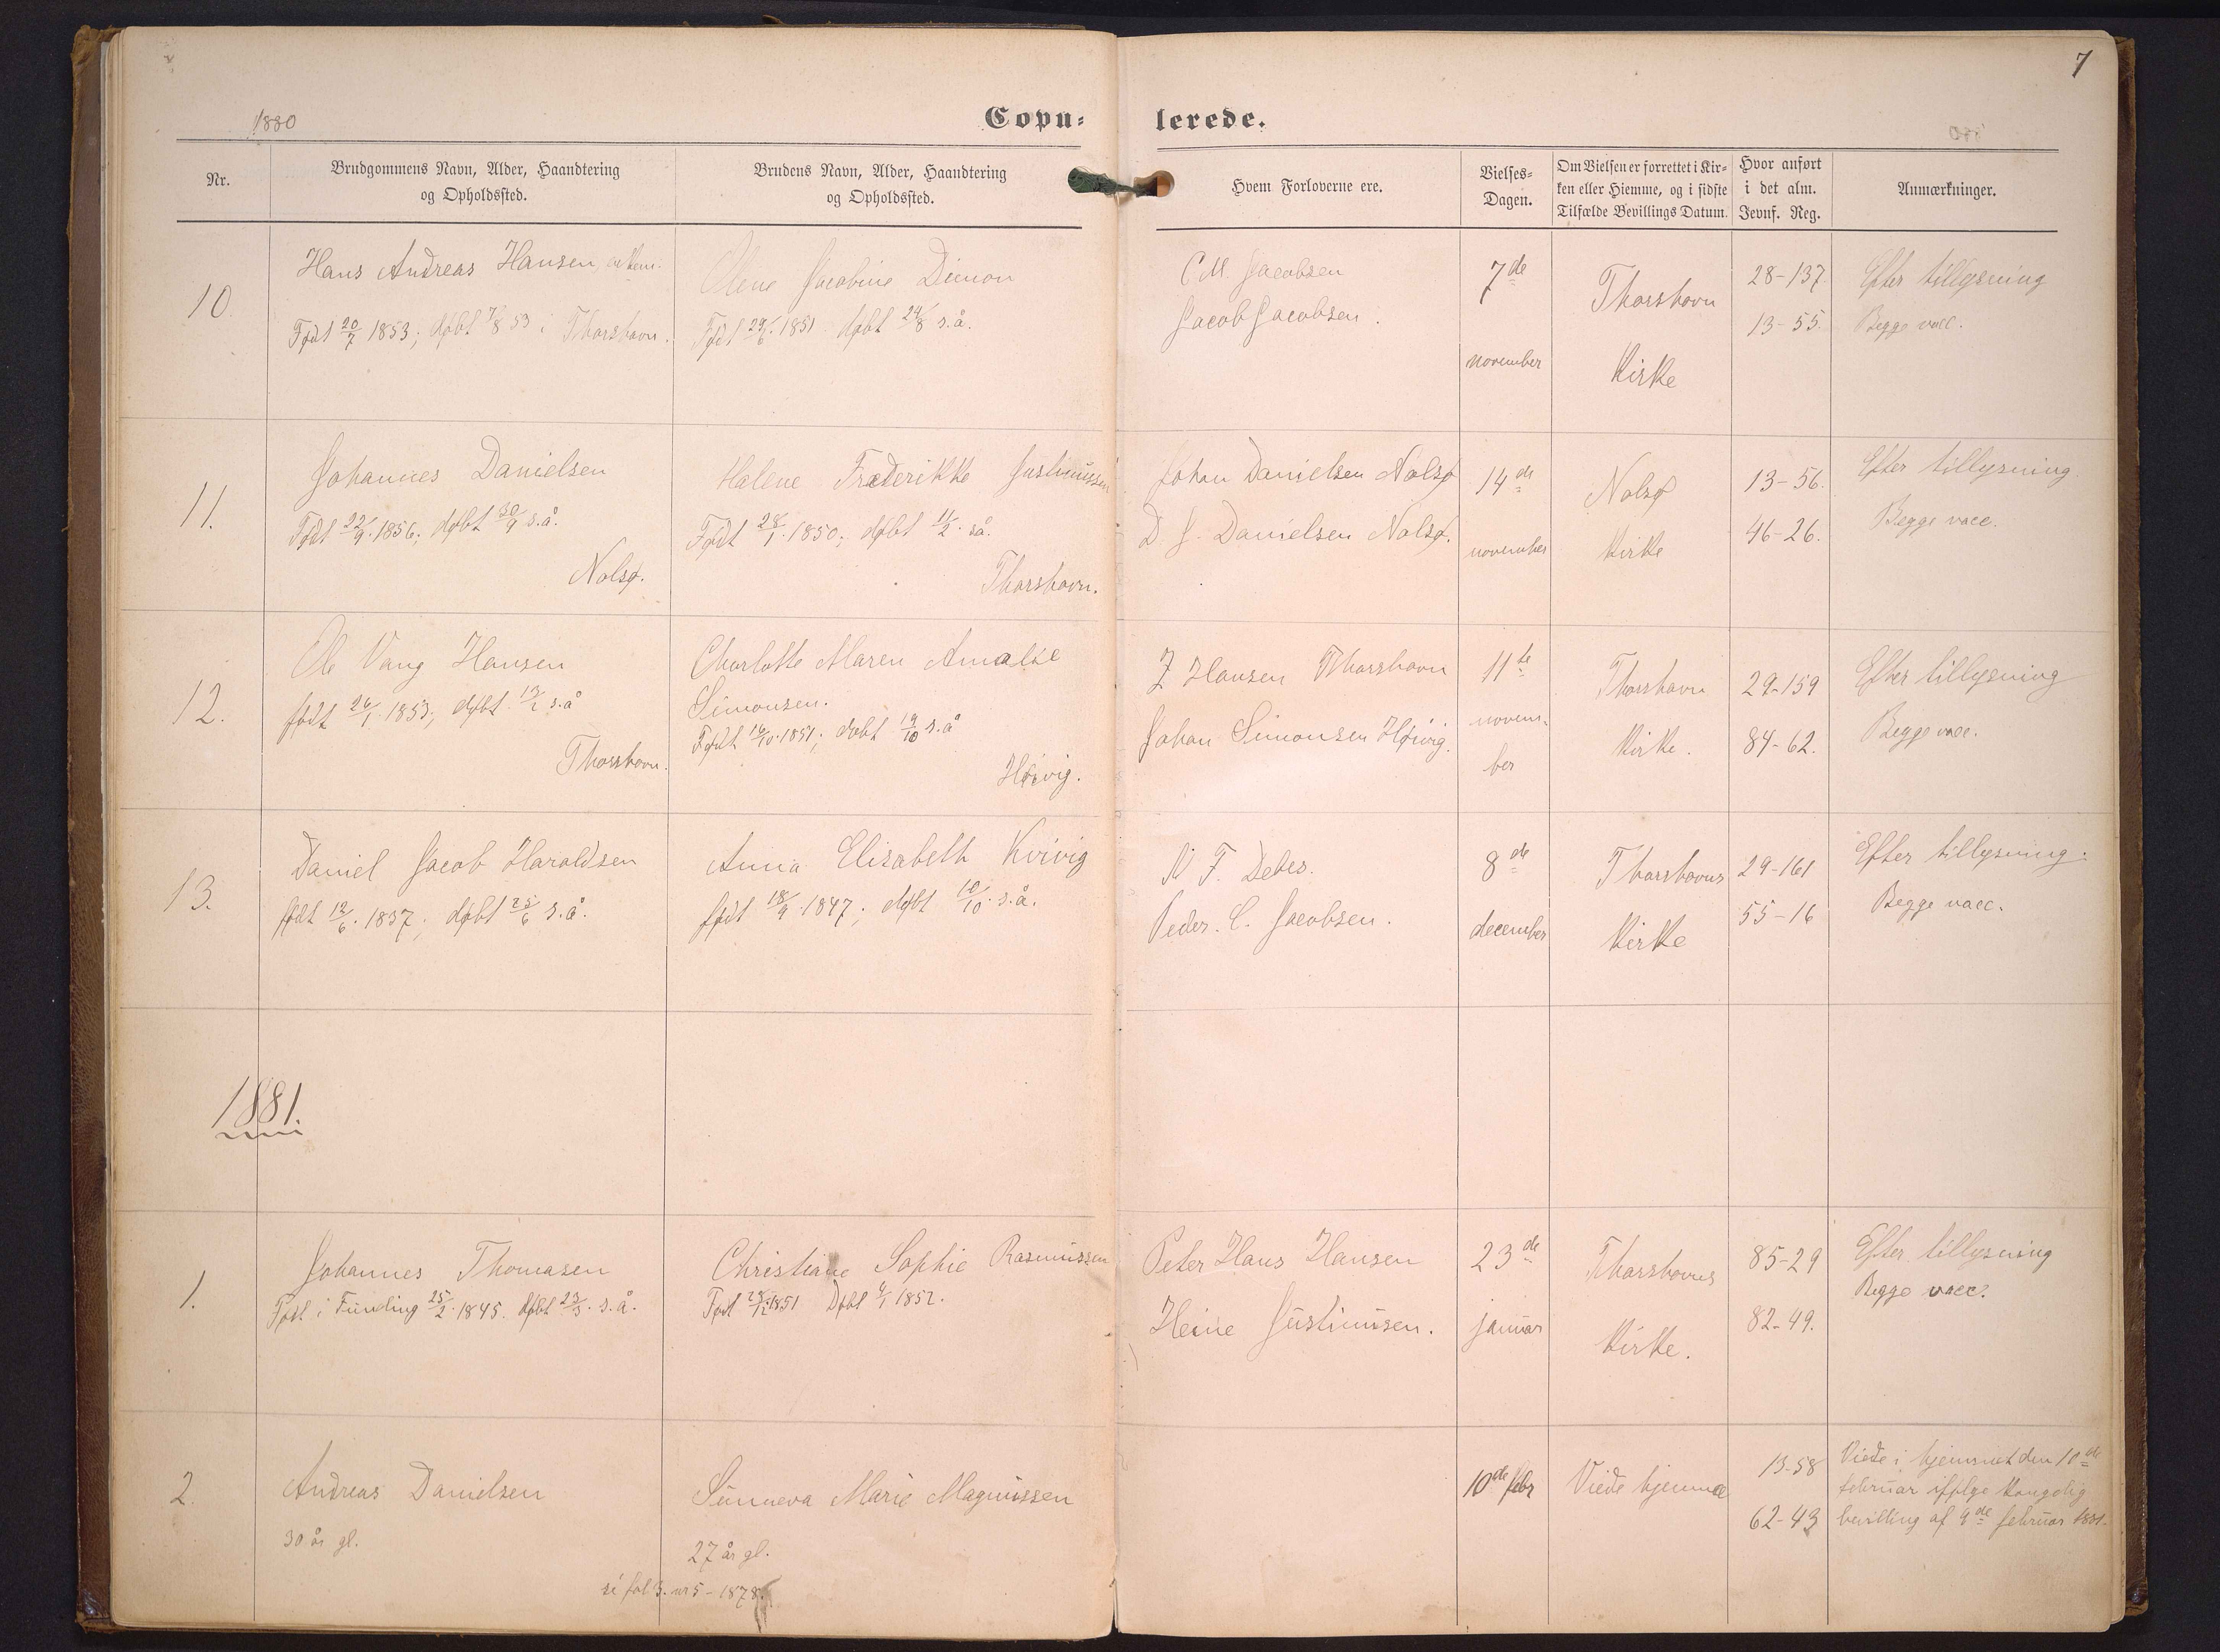 7
1880
Copu-
lerede.
Nr.
Brudgommens Navn, Alder, Haandtering
og Opholdssted.
Brudens Navn, Alder, Haandtering
og Opholdssted.
Hvem Forloverne ere.
Vielses-
Dagen.
Om Vielsen er forrettet i Kir-
ken eller Hiemme, og i sidste
Tilfælde Bevillings Datum.
Hvor anført
i det alm.
Jevnf. Reg.
Anmærkninger.
10.
Hans Andreas Hansen
Født 20/7 1853; døbt 7/8 53 i Thorshavn.
Olene Jacobine Dimon
Født 29/6 1851 døbt 24/8 s.å.
C M. Jacobsen
Jacob Jacobsen.
7de
november
Thorshavn
Kirke
28-137.
13-55.
Efter tillysning
Begge vacc.
11.
Johannes Danielsen
Født 22/9. 1856; døbt 30/9 s.å.
Nolsø.
Helene Frederikke Justinussen
Født 28/1. 1850; døbt 11/2. så.
Thorshavn.
Johan Danielsen Nolsø
D. J. Danielsen Nolsø.
14de
november
Nolsø
Kirke
13-56.
46-26.
Efter tillysning.
Begge vacc.
12.
Ole Vang Hansen
født 26/1. 1853; døbt 13/2 s.å
Thorshavn.
Charlotte Maren Amalie
Simonsen.
Født 16/10. 1851; døbt 19/10 s.å
Høivig.
Z Hansen Thorshavn
Johan Simonsen Høivig.
11te
novem-
ber
Thorshavn
Kirke.
29-159
84-62.
Efter tillysning
Begge vacc.
13.
Daniel Jacob Haraldsen
født 12/6. 1837; døbt 25/6 s.å.
Anna Elisabeth Kvivig
født 18/9. 1847; døbt 10/10. s.å.
N F. Debes.
Peder. C. Jacobsen.
8de
december
Thorshavns
Kirke
29-161
55-16
Efter tillysning.
Begge vacc.
1881.
1.
Johannes Thomasen
Født i Funding 25/2. 1845. døbt 23/3. s.å.
Christiane Sophie Rasmussen
Født 28/12 1851 Døbt 4/1 1852.
Peter Hans Hansen
Heine Justinusen.
23de
januar
Thorshavns
Kirke.
85-29
82-49.
Efter tillysning
Begge vacc.
2.
Andreas Danielsen
30 år gl.
Sunneva Marie Magnussen
27 år gl.
se fol 3. nr 5 - 1878.
10de febr
Viede hjemme
13-58
62-43
Viede i hjemmet den 10de
februar ifølge kongelig
bevilling af 9de februar 1881.